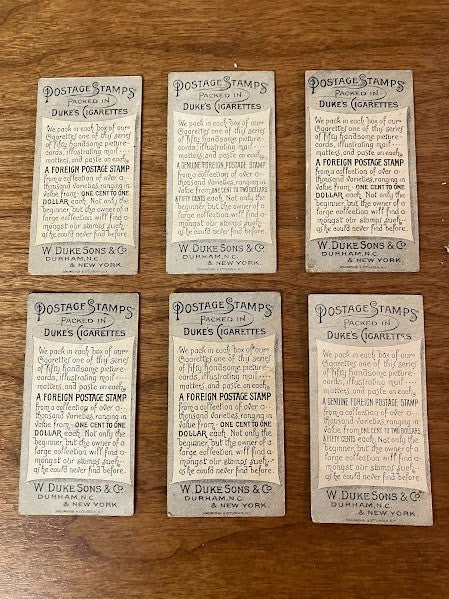 POSTAGE STAMPS
PACKED IN
DUKE'S CIGARETTES
We pack in each box of our
Cigarettes one of this series
of fifty handsome picture-
cards, illustrating mail
matters, and paste on each,
A FOREIGN POSTAGE STAMP
from a collection of over a
thousand varieties, ranging in
value from ONE CENT TO ONE
DOLLAR each. Not only the
beginner, but the owner of a
large collection will find a-
mongst our stamps such
as he could never find before.
W. DUKE SONS & CO.
DURHAM, N.C.
& NEW YORK.
POSTAGE STAMPS
PACKED IN
DUKE'S CIGARETTES
We pack in each box of our
Cigarettes one of this series
of fifty handsome picture-
cards, illustrating mail
matters, and paste on each,
A GENUINE FOREIGN POSTAGE STAMP
from a collection of over a
thousand varieties, ranging in
value from ONE CENT TO TWO DOLLARS
& FIFTY CENTS each. Not only the
beginner, but the owner of a
large collection will find a-
mongst our stamps such
as he could never find before.
W. DUKE SONS & CO.
DURHAM, N.C.
& NEW YORK.
POSTAGE STAMPS
PACKED IN
DUKE'S CIGARETTES
We pack in each box of our
Cigarettes one of this series
of fifty handsome picture-
cards, illustrating mail
matters, and paste on each,
A FOREIGN POSTAGE STAMP
from a collection of over a
thousand varieties, ranging in
value from ONE CENT TO ONE
DOLLAR each. Not only the
beginner, but the owner of a
large collection will find a-
mongst our stamps such
as he could never find before.
W. DUKE SONS & CO.
DURHAM, N.C.
& NEW YORK.
POSTAGE STAMPS
PACKED IN
DUKE'S CIGARETTES
We pack in each box of our
Cigarettes one of this series
of fifty handsome picture-
cards, illustrating mail
matters, and paste on each,
A FOREIGN POSTAGE STAMP
from a collection of over a
thousand varieties, ranging in
value from ONE CENT TO ONE
DOLLAR each. Not only the
beginner, but the owner of a
large collection will find a-
mongst our stamps such
as he could never find before.
W. DUKE SONS & CO.
DURHAM, N.C.
& NEW YORK.
POSTAGE STAMPS
PACKED IN
DUKE'S CIGARETTES
We pack in each box of our
Cigarettes one of this series
of fifty handsome picture-
cards, illustrating mail
matters, and paste on each,
A FOREIGN POSTAGE STAMP
from a collection of over a
thousand varieties, ranging in
value from ONE CENT TO ONE
DOLLAR each. Not only the
beginner, but the owner of a
large collection will find a-
mongst our stamps such
as he could never find before.
W. DUKE SONS & CO.
DURHAM, N.C.
& NEW YORK.
POSTAGE STAMPS
PACKED IN
DUKE'S CIGARETTES
We pack in each box of our
Cigarettes one of this series
of fifty handsome picture-
cards, illustrating mail
matters, and paste on each,
A GENUINE FOREIGN POSTAGE STAMP
from a collection of over a
thousand varieties, ranging in
value from ONE CENT TO TWO DOLLARS
& FIFTY CENTS each. Not only the
beginner, but the owner of a
large collection will find a-
mongst our stamps such
as he could never find before.
W. DUKE SONS & CO.
DURHAM, N.C.
& NEW YORK.